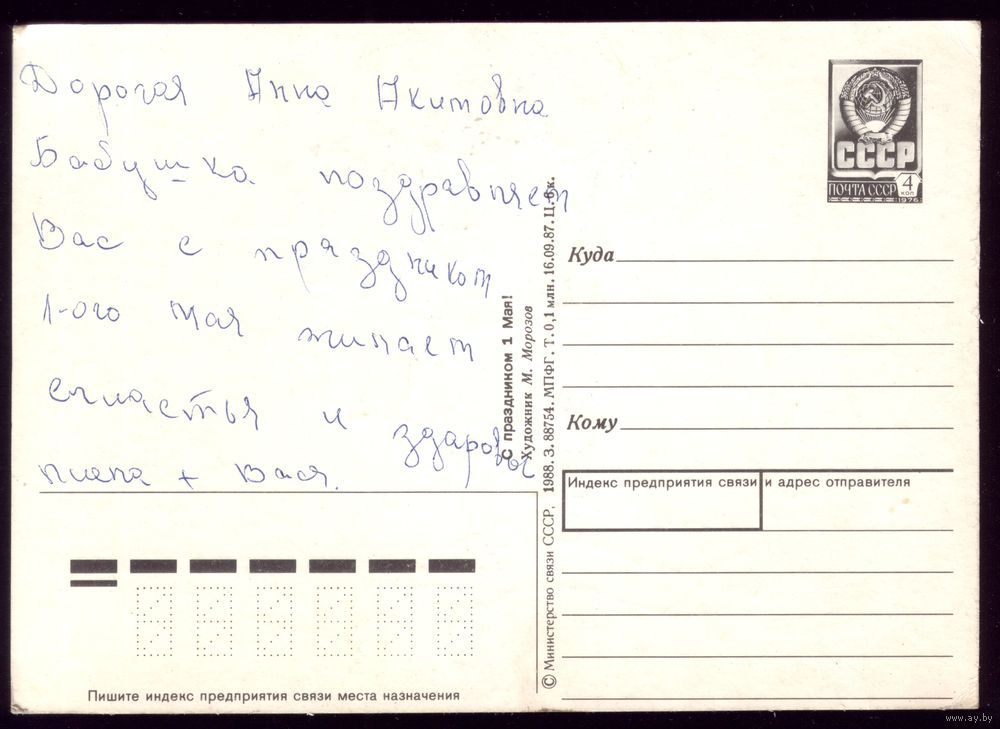 Дорогая Анна Акимовна
Бабушка поздравляет
Вас с праздником
1-ого мая жилает
счиастья и здаровья
+ Вася.
СССР
ПОЧТА СССР 4 КОП
1976
Куда
Кому
Индекс предприятия связи и адрес отправителя
С праздником 1 Мая!
Художник М. Морозов
© Министерство связи СССР, 1988. З. 88754. МПФГ. Т. 0,1 млн. 16.09.87. Ц. 6 к.
Пишите индекс предприятия связи места назначения
www.ay.by